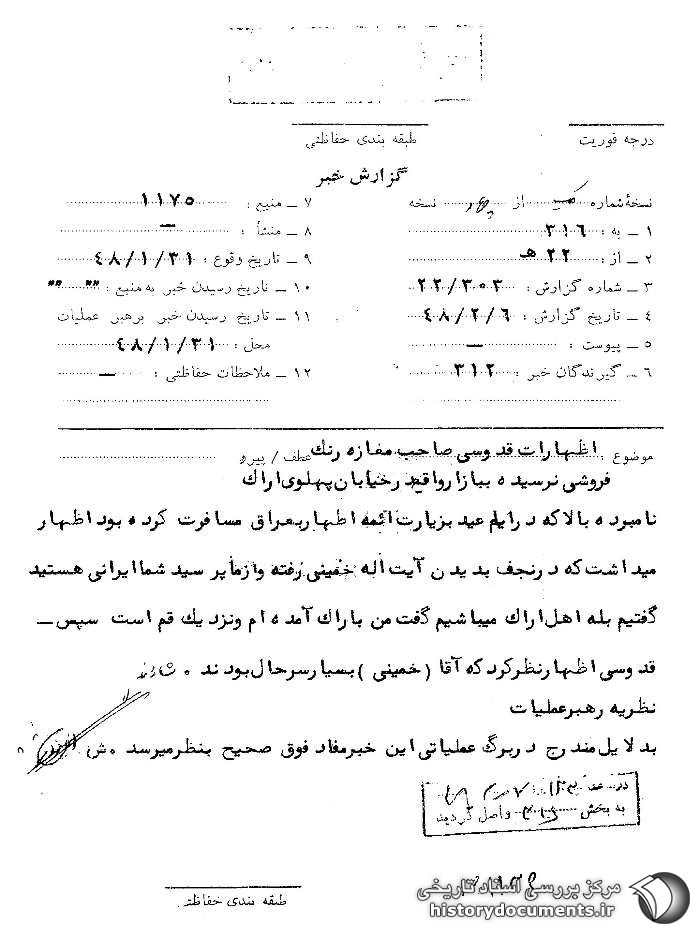 درجه فوریت
طبقه بندی حفاظتی
گزارش خبر
نسخهٔ شماره از نسخه
۱ ـ به : ۳۱۶
۲ ـ از : ۲۲ هـ
۳ ـ شماره گزارش : ۲۲/۳۰۳
۴ ـ تاریخ گزارش : ۴۸/۲/۶
۵ ـ پیوست : ـ
۶ ـ گیرندگان خبر : ۳۱۲
۷ ـ منبع : ۱۱۷۵
۸ ـ منشأ : ـ
۹ ـ تاریخ وقوع : ۴۸/۱/۳۱
۱۰ ـ تاریخ رسیدن خبر به منبع : " " " "
۱۱ ـ تاریخ رسیدن خبر برهبر عملیات
محل : ۴۸/۱/۳۱
۱۲ ـ ملاحظات حفاظتی : ـ
موضوع : اظهارات قدوسی صاحب مغازه رنك عطف / پیرو
فروشی نرسیده ببازار واقع در خیابان پهلوی اراك
نامبرده بالا که در ایام عید بزیارت ائمه اطهار بعراق مسافرت کرده بود اظهار
میداشت که در نجف بدیدن آیت اله خمینی رفته و از ما پرسید شما ایرانی هستید
گفتیم بله اهل اراك میباشیم گفت من باراك آمده ام و نزدیك قم است سپس ـ
قدوسی اظهار نظر کرد که آقا ( خمینی ) بسیار سرحال بودند .
نظریه رهبر عملیات
بدلایل مندرج در برگ عملیاتی این خبر مفاد فوق صحیح بنظر میرسد . ش
به بخش ۳۱۶ واصل گردید
طبقه بندی حفاظتی
مرکز بررسی اسناد تاریخی
historydocuments.ir